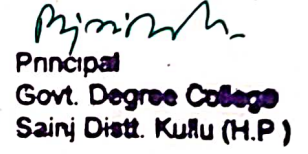 Principal
Govt. Degree College
Sainj Distt. Kullu (H.P )